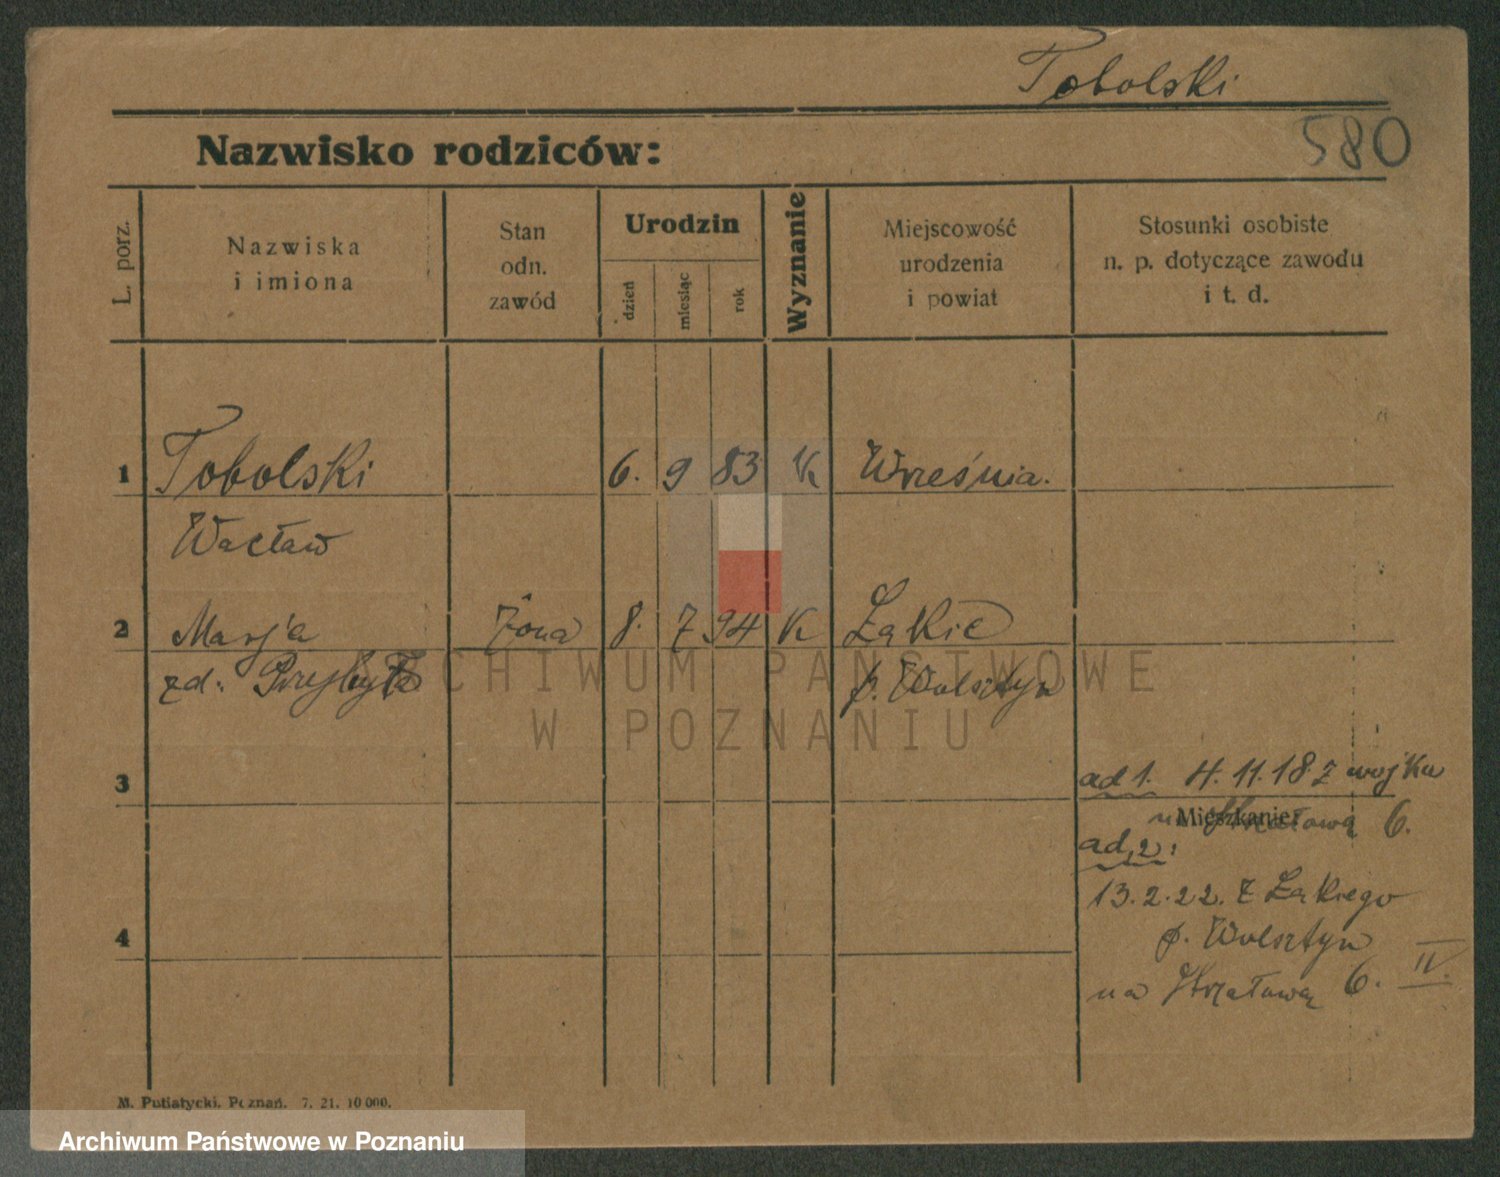 Tobolski
580
Nazwisko rodziców:
L. porz.
Nazwiska
i imiona
Stan
odn.
zawód
Urodzin
dzień
miesiąc
rok
Wyznanie
Miejscowość
urodzenia
i powiat
Stosunki osobiste
n. p. dotyczące zawodu
i t. d.
1 Tobolski 6. 9 83 K Września.
Wacław
2 Marja Żona 8. 7 94 K Łąkie
zd. p. Wolsztyn
3
ad 1. 4. 11. 18 z wojska
Mieszkanie:
na Strzałową 6.
ad. 2:
13. 2. 22. z Łąkiego
4
p. Wolsztyn
na Strzałową 6. II.
M. Putiatycki. Poznań. 7. 21. 10 000.
ARCHIWUM PAŃSTWOWE
W POZNANIU
Archiwum Państwowe w Poznaniu